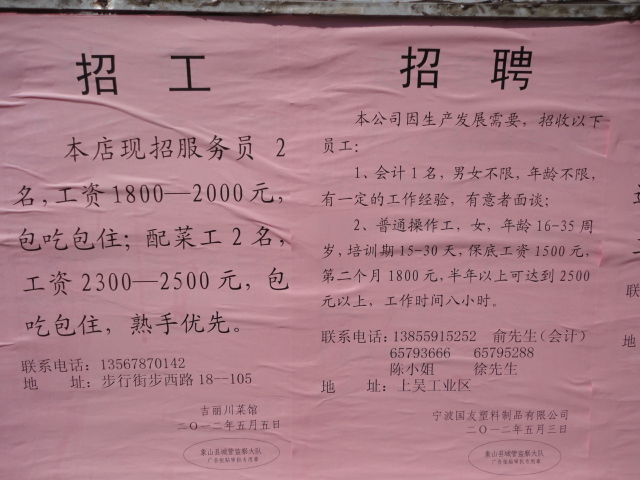 招工
本店现招服务员 2
名，工资1800—2000元，
包吃包住；配菜工2名，
工资2300—2500元，包
吃包住，熟手优先。
联系电话：13567870142
地　址：步行街步西路18--105
吉丽川菜馆
二〇一二年五月五日
象山县城管监察大队
招聘
本公司因生产发展需要，招收以下
员工：
1、会计1名，男女不限，年龄不限，
有一定的工作经验，有意者面谈；
2、普通操作工，女，年龄16-35周
岁，培训期15-30天，保底工资1500元，
第二个月1800元，半年以上可达到2500
元以上，工作时间八小时。
联系电话：13855915252 俞先生（会计）
65793666 65795288
陈小姐 徐先生
地　址：上吴工业区
宁波国友塑料制品有限公司
二〇一二年五月三日
象山县城管监察大队